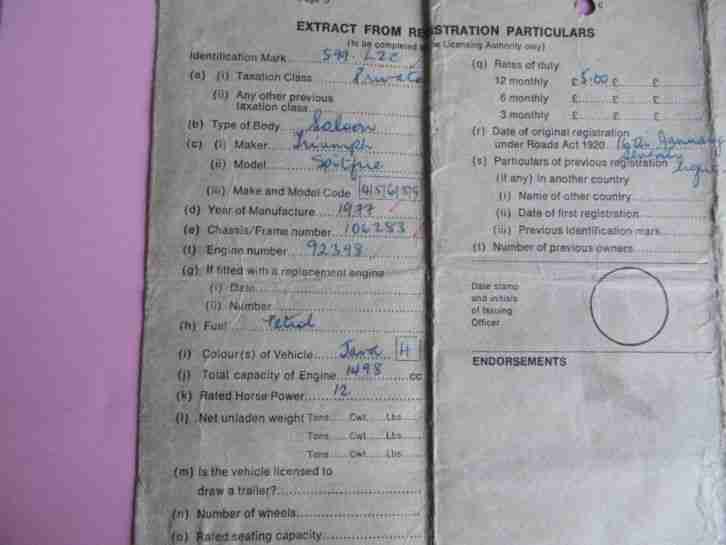 EXTRACT FROM REGISTRATION PARTICULARS
(to be completed by the Licensing Authority only)
Identification Mark 599. LZE
(a) (i) Taxation Class Private
(ii) Any other previous
taxation class
(b) Type of Body Saloon
(c) (i) Maker Triumph
(ii) Model Spitfire
(iii) Make and Model Code
(d) Year of Manufacture 1977
(e) Chassis/Frame number 106283
(f) Engine number 92398
(g) If fitted with a replacement engine
(i) Date
(ii) Number
(h) Fuel Petrol
(i) Colour(s) of Vehicle Java 4
(j) Total capacity of Engine 1498 cc
(k) Rated Horse Power 12
(l) Net unladen weight Tons Cwt. Lbs
Tons Cwt. Lbs
Tons Cwt. Lbs
(m) Is the vehicle licensed to
draw a trailer?
(n) Number of wheels
(o) Rated seating capacity
(q) Rates of duty
12 monthly £5.00 £ £
6 monthly £ £ £
3 monthly £ £ £
(r) Date of original registration
under Roads Act 1920 16th January
seventy eight
(s) Particulars of previous registration
(if any) in another country
(i) Name of other country
(ii) Date of first registration
(iii) Previous identification mark
(t) Number of previous owners
Date stamp
and initials
of Issuing
Officer
ENDORSEMENTS